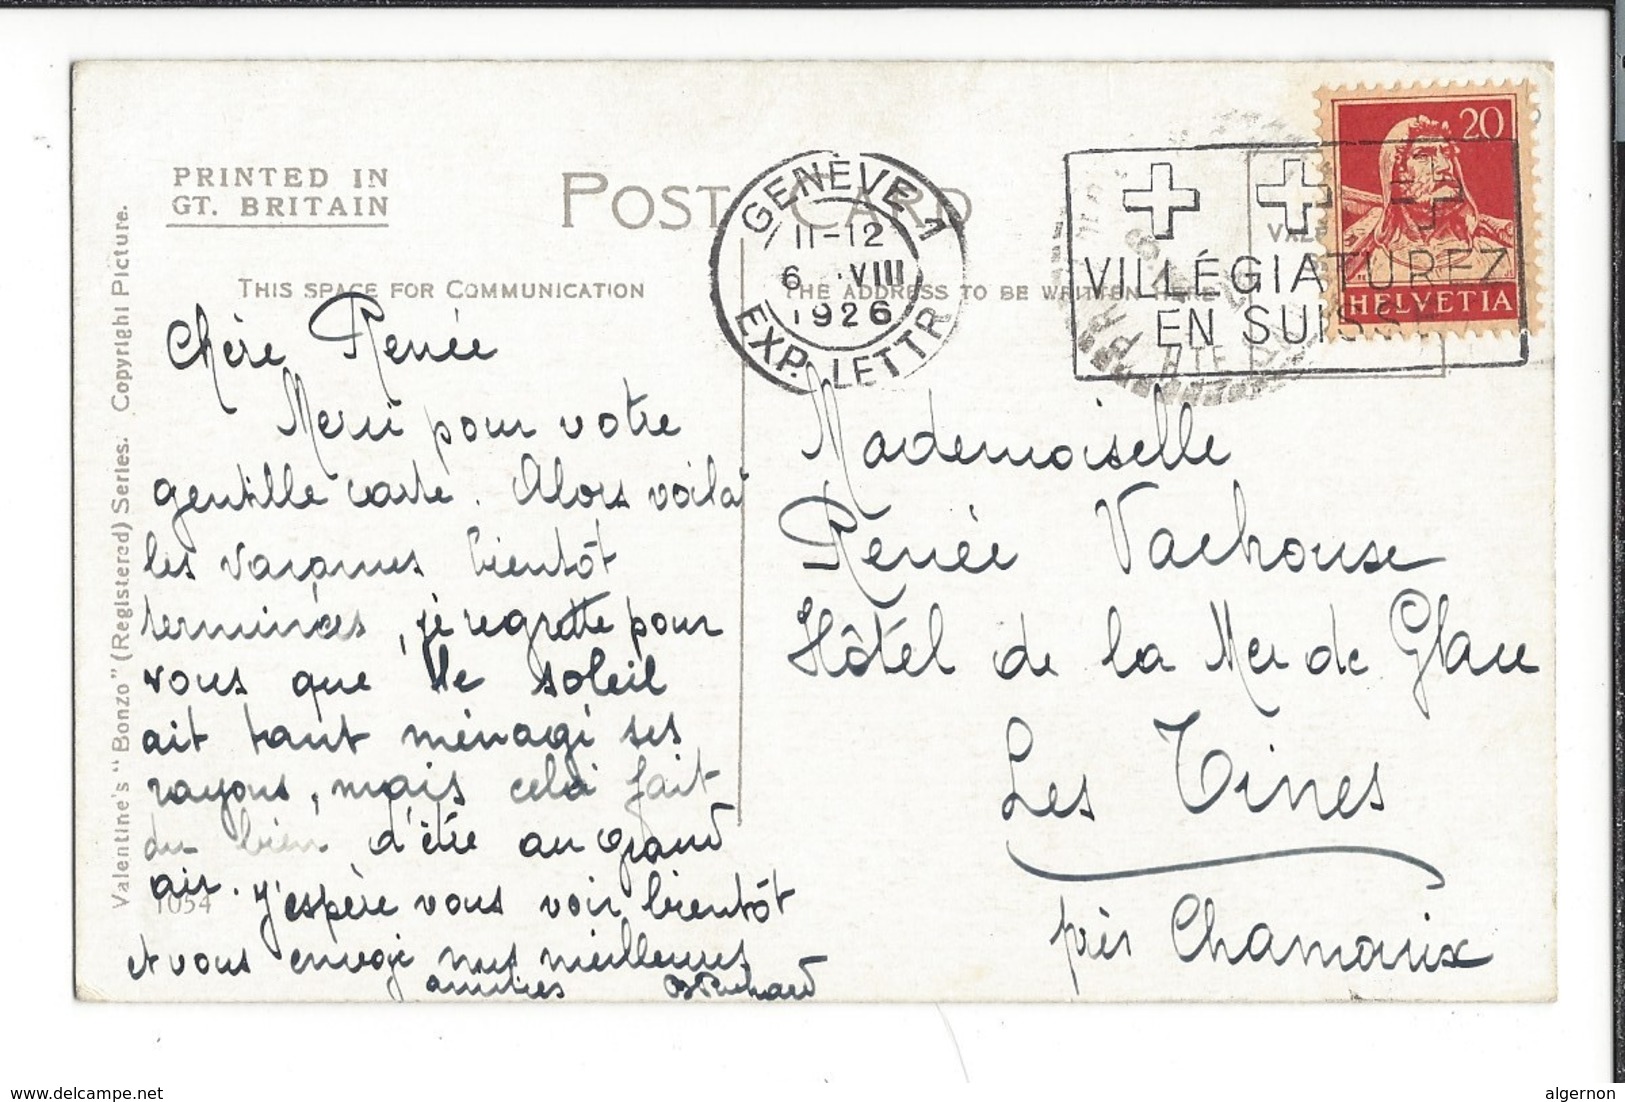 PRINTED IN
GT. BRITAIN
POST CARD
THIS SPACE FOR COMMUNICATION
THE ADDRESS TO BE WRITTEN HERE
Valentine's "Bonzo" (Registered) Series. Copyright Picture.
GENÈVE 1
11-12
6 .VIII
1926
EXP. LETTR
VILLÉGIATUREZ
EN SUISSE
20
HELVETIA
Chère Renée
Merci pour votre
gentille carte. Alors voilà
les vacances bientôt
terminées, je regrette pour
vous que le soleil
ait tant ménagé ses
rayons, mais cela fait
du bien d'être au grand
air. J'espère vous voir bientôt
et vous envoye mes meilleures
amitiés
1054
Mademoiselle
Renée Vachouse
Hôtel de la Mer de Glace
Les Tines
près Chamonix
delcampe.net
algernon